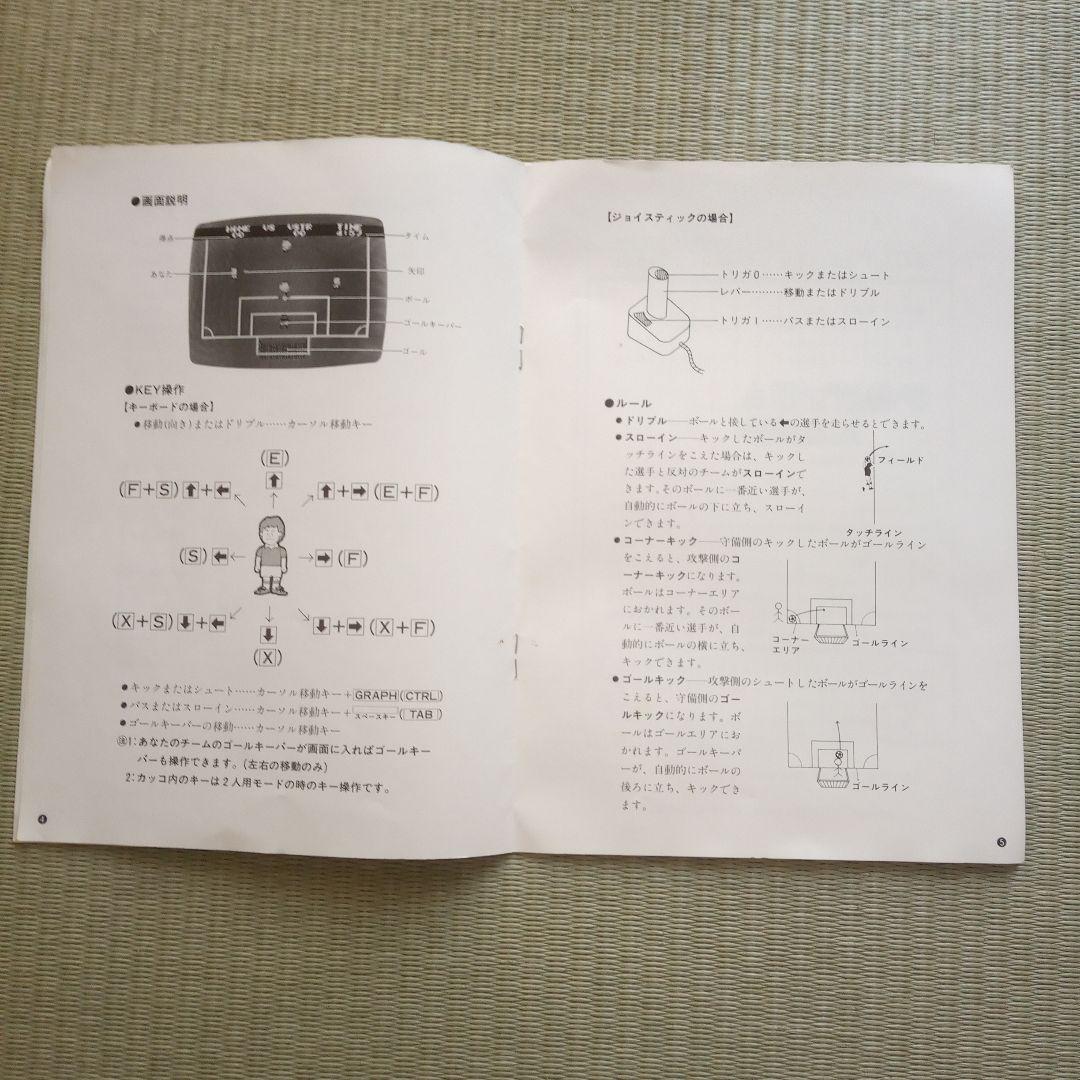 ●画面説明
HOME VS VSTR TIME
00 00 4:57
得点
タイム
あなた
矢印
ボール
ゴールキーパー
ゴール
●KEY操作
【キーボードの場合】
●移動(向き)またはドリブル……カーソル移動キー
(E)
⬆
(F+S)⬆+⬅
⬆+➡(E+F)
(S)⬅
➡(F)
(X+S)⬇+⬅
⬇+➡(X+F)
⬇
(X)
●キックまたはシュート……カーソル移動キー+GRAPH(CTRL)
●パスまたはスローイン……カーソル移動キー+スペースキー(TAB)
●ゴールキーパーの移動……カーソル移動キー
㊟1:あなたのチームのゴールキーパーが画面に入ればゴールキー
パーも操作できます。(左右の移動のみ)
2:カッコ内のキーは2人用モードの時のキー操作です。
❹
【ジョイスティックの場合】
トリガ0……キックまたはシュート
レバー………移動またはドリブル
トリガ1……パスまたはスローイン
●ルール
●ドリブル──ボールと接している⬅の選手を走らせるとできます。
●スローイン──キックしたボールがタ
ッチラインをこえた場合は、キックし
た選手と反対のチームがスローインで
きます。そのボールに一番近い選手が、
自動的にボールの下に立ち、スローイ
ンできます。
フィールド
タッチライン
●コーナーキック──守備側のキックしたボールがゴールライン
をこえると、攻撃側のコ
ーナーキックになります。
ボールはコーナーエリア
におかれます。そのボー
ルに一番近い選手が、自
動的にボールの横に立ち、
キックできます。
コーナー
エリア
ゴールライン
●ゴールキック──攻撃側のシュートしたボールがゴールラインを
こえると、守備側のゴー
ルキックになります。ボ
ールはゴールエリアにお
かれます。ゴールキーパ
ーが、自動的にボールの
後ろに立ち、キックでき
ます。
ゴールライン
❺